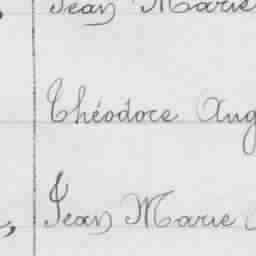 Jean Marie
Théodore Aug
Jean Marie